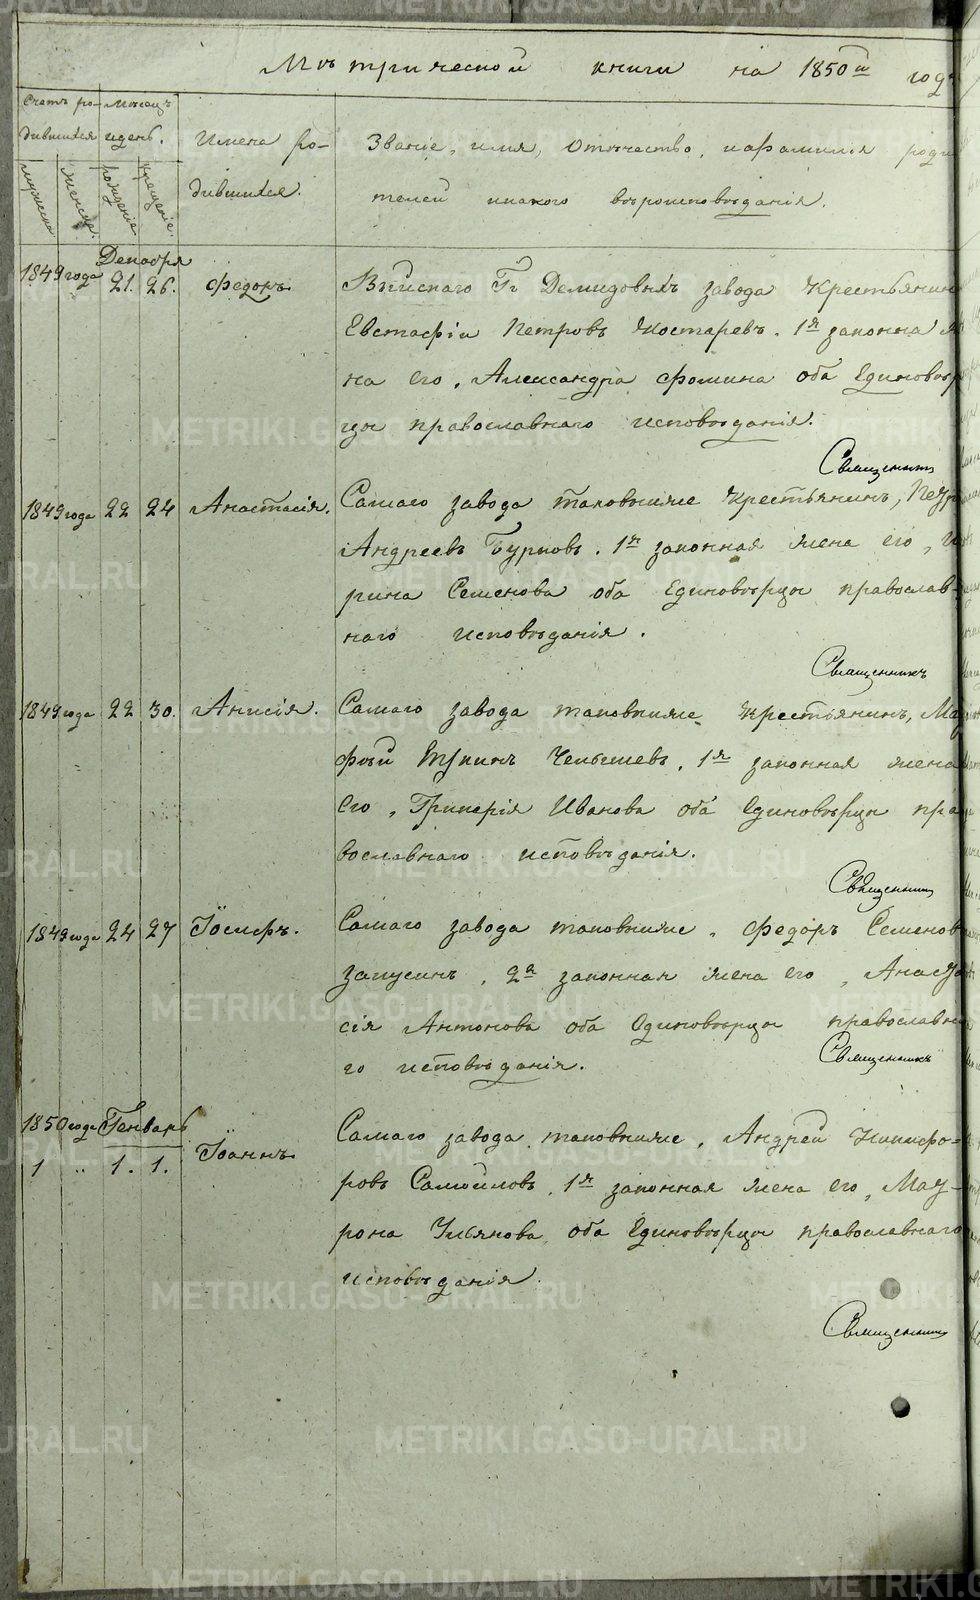 Метрической книги на 1850й годъ
Счетъ ро-
дившихся
Мѣсяцъ
и день.
Имена ро-
дившихся.
Званіе, имя, Отчество, и фамилія роди
телей и какого вѣроисповѣданія.
мужеска.
женска.
рожденіе
крещеніе.
Декабря
1849 года 21. 26. Федоръ.
завода Крестьянин
Евстафіи Петровъ Костаревъ. 1я законна
на его, Александра Фомина оба Единовѣр
цы православнаго исповѣданія.
Священник
1849 года 22 24 Анастасія.
Самаго завода таковыиже Крестьянинъ,
Андреевъ Бурковъ. 1я законная жена его, И
рина Семенова оба Единовѣрцы православ-
наго исповѣданія.
Священникъ
1849 года 22 30. Анисія.
Самаго завода таковыиже Крестьянинъ, Ма
его, Гликерія Иванова оба Единовѣрцы пра
вославнаго исповѣданія.
Священник
1849 года 24 27 Іосифъ.
Самаго завода таковыиже, Федоръ Семенов
запусинъ, 2а законная жена его, Анаста
сія Антонова оба Единовѣрцы православна
го исповѣданія.
Священникъ
1850 года Генварь
1 " 1. 1. Іоаннъ
Самаго завода таковыиже, Андрей Никифо-
ровъ Самойловъ, 1я законная жена его, Мат-
рона Ульянова, оба Единовѣрцы православнаго
исповѣданія.
Священник
METRIKI.GASO-URAL.RU